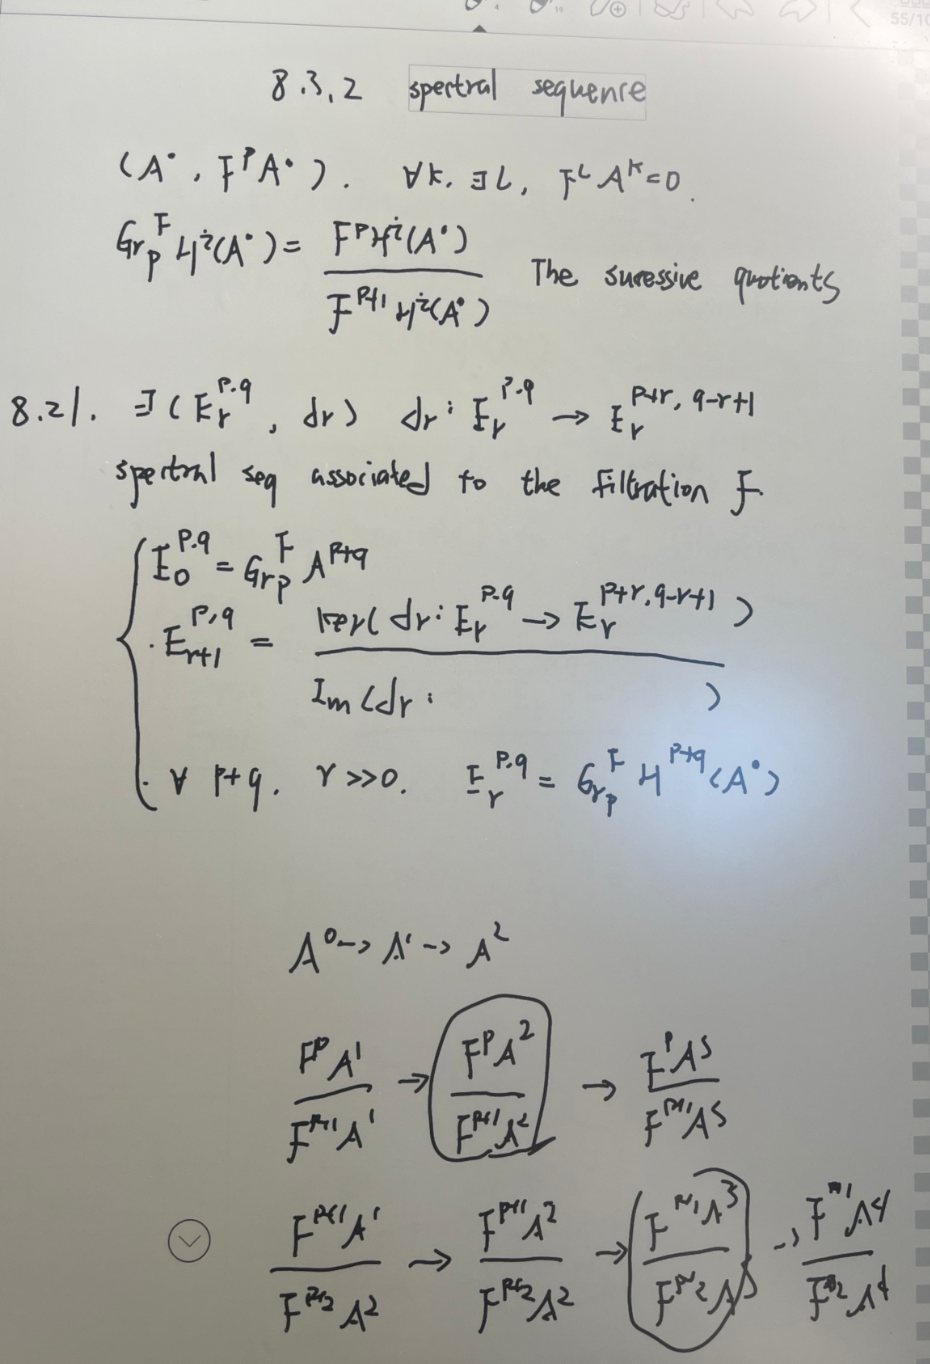 55/10
8.3.2 spectral sequence
(A^•, F^p A^•). ∀k. ∃L, F^L A^k=0.
Gr_p^F H^i(A^•) = F^p H^i(A^•) / F^{p+1} H^i(A^•) The sucessive quotients
8.21. ∃(E_r^{p.q}, dr) dr: E_r^{p.q} → E_r^{p+r, q-r+1}
spectral seq associated to the filtration F.
E_0^{p.q} = Gr_p^F A^{p+q}
. E_{r+1}^{p,q} = ker(dr: E_r^{p.q} → E_r^{p+r,q-r+1}) / Im(dr: )
. ∀ p+q. r>>0. E_r^{p.q} = Gr_p^F H^{p+q}(A^•)
A^0 -> A^1 -> A^2
F^p A^1 / F^{p+1} A^1 → F^p A^2 / F^{p+1} A^2 → F^p A^3 / F^{p+1} A^3
F^{p+1} A^1 / F^{p+2} A^2 → F^{p+1} A^2 / F^{p+2} A^2 → F^{p+1} A^3 / F^{p+2} A^3 → F^{p+1} A^4 / F^{p+2} A^4